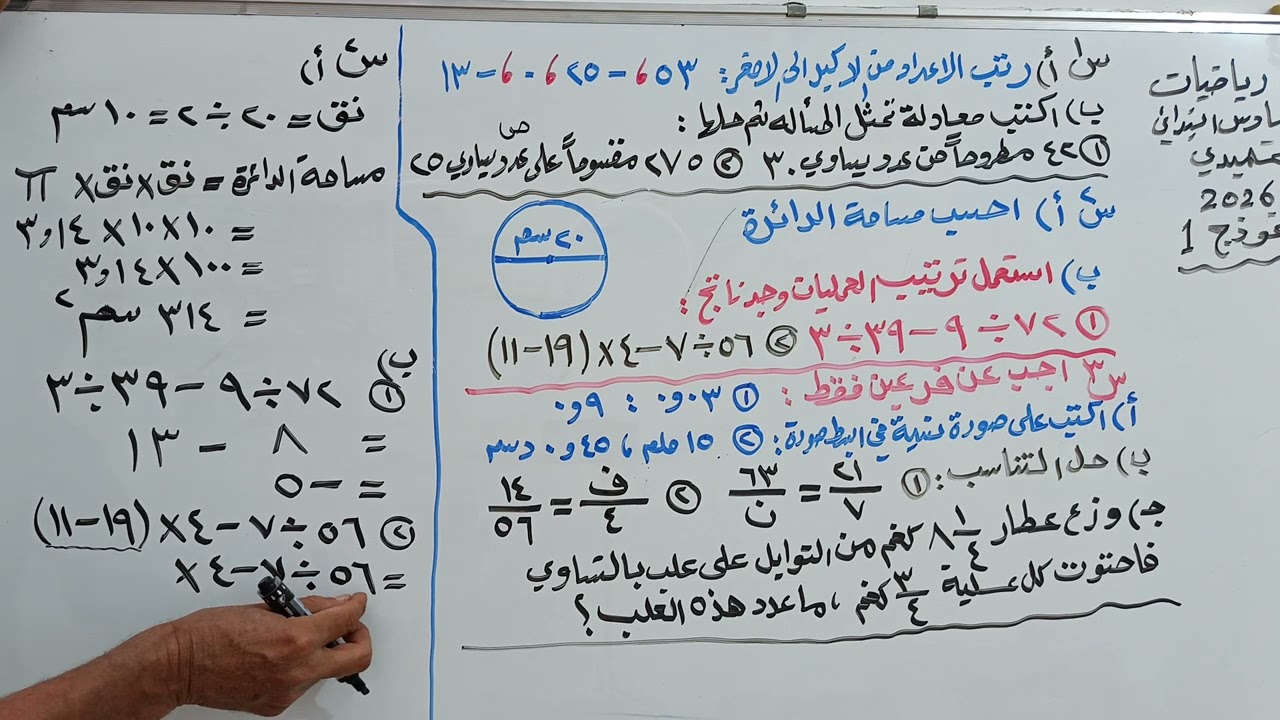 رياضيات
سادس ابتدائي
تمهيدي
2026
نموذج 1
س١ أ) رتب الاعداد من الاكبر الى الاصغر: ٥٣ ، ٦ــ ٢٥ ، ٠ ، ٦ــ ١٣ــ
ب) اكتب معادلة تمثل المسأله ثم حلها :
① ٤٢ مطروحاً من عدد يساوي ٣٠ ② ٢٧٥ مقسوماً على عدد يساوي ٢٥
س٢ أ) احسب مساحة الدائرة
٢٠ سم
ب) استعمل ترتيب العمليات وجد ناتج :
① ٧٢ ÷ ٩ – ٣٩ ÷ ٣ ② ٥٦ ÷ ٧ – ٤ × (١٩ – ١١)
س٣ اجب عن فرعين فقط :
أ) اكتب على صورة نسبة في ابسط صورة: ① ٠٫٠٣ : ٠٫٩
② ١٥ ملم ، ٠٫٤٥ دسم
ب) حل التناسب : ① ٢١/٧ = ٦٣/ن ② ف/٤ = ١٤/٥٦
جـ) وزع عطار ٨ ١/٤ كغم من التوابل على علب بالتساوي
فاحتوت كل علبة ٣/٤ كغم ، ما عدد هذه العلب ؟
س٢ أ)
نق = ٢٠ ÷ ٢ = ١٠ سم
مساحة الدائرة = نق × نق × π
= ١٠ × ١٠ × ٣٫١٤
= ١٠٠ × ٣٫١٤
= ٣١٤ سم٢
ب)
① ٧٢ ÷ ٩ – ٣٩ ÷ ٣
= ٨ – ١٣
= –٥
② ٥٦ ÷ ٧ – ٤ × (١٩ – ١١)
= ٥٦ ÷ ٧ – ٤ ×